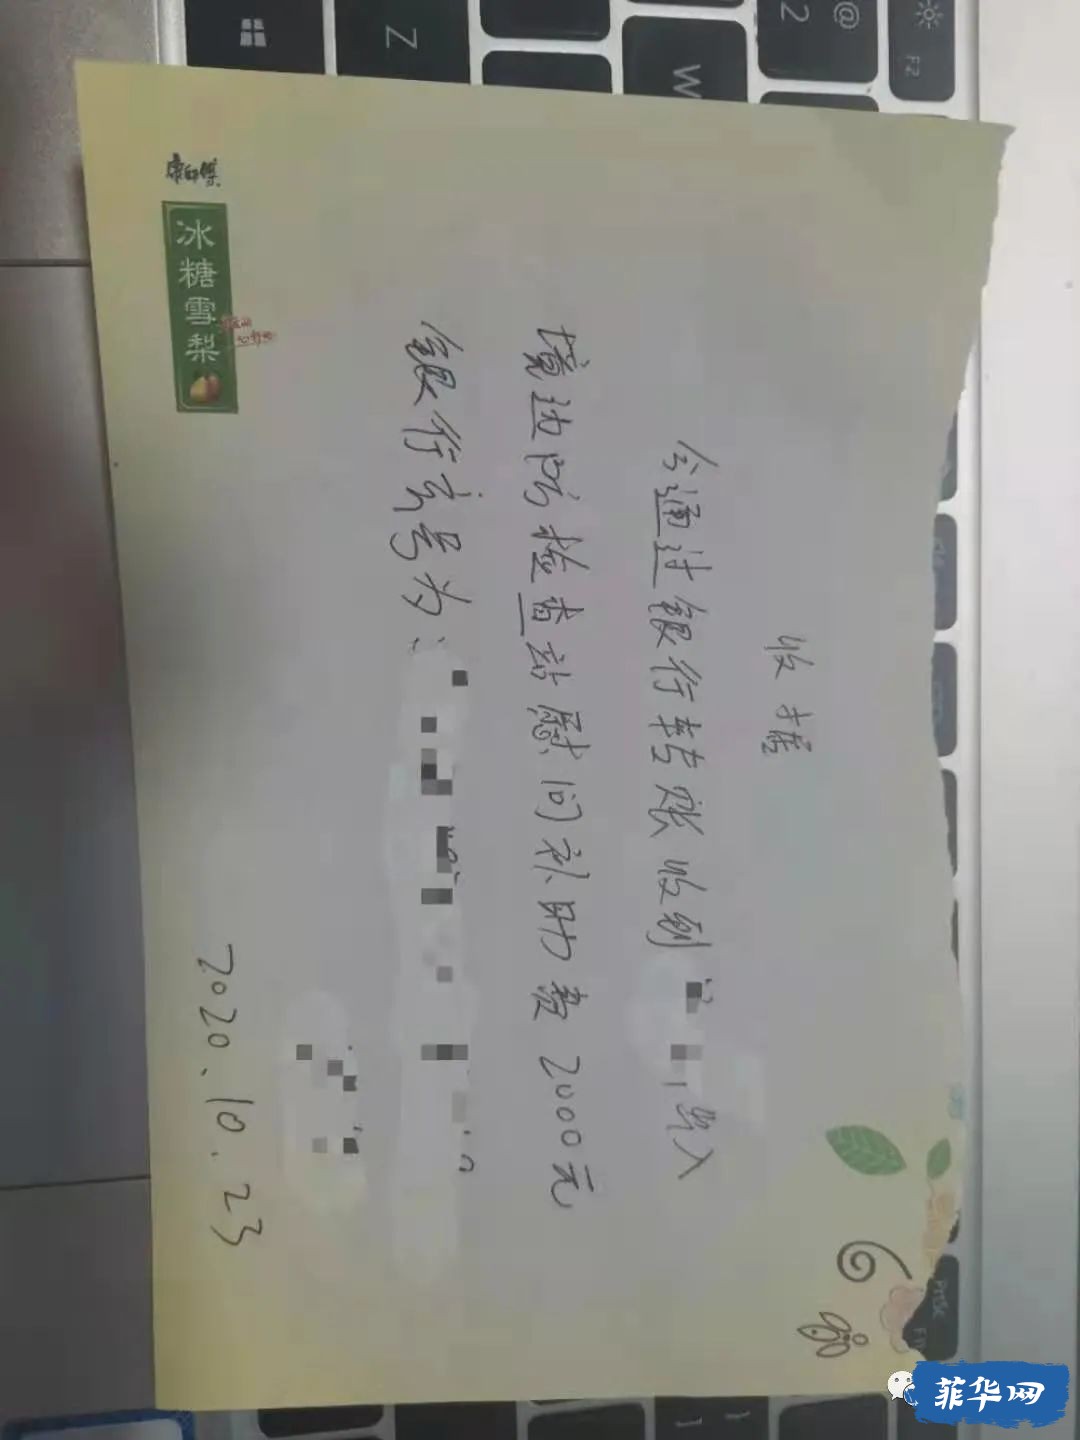 康师傅
冰糖雪梨
收据
今通过银行转账收到
出入
境边防检查站慰问补助费2000元
银行卡号为:
2020.10.23
Z
W
@
2
F2
菲华网